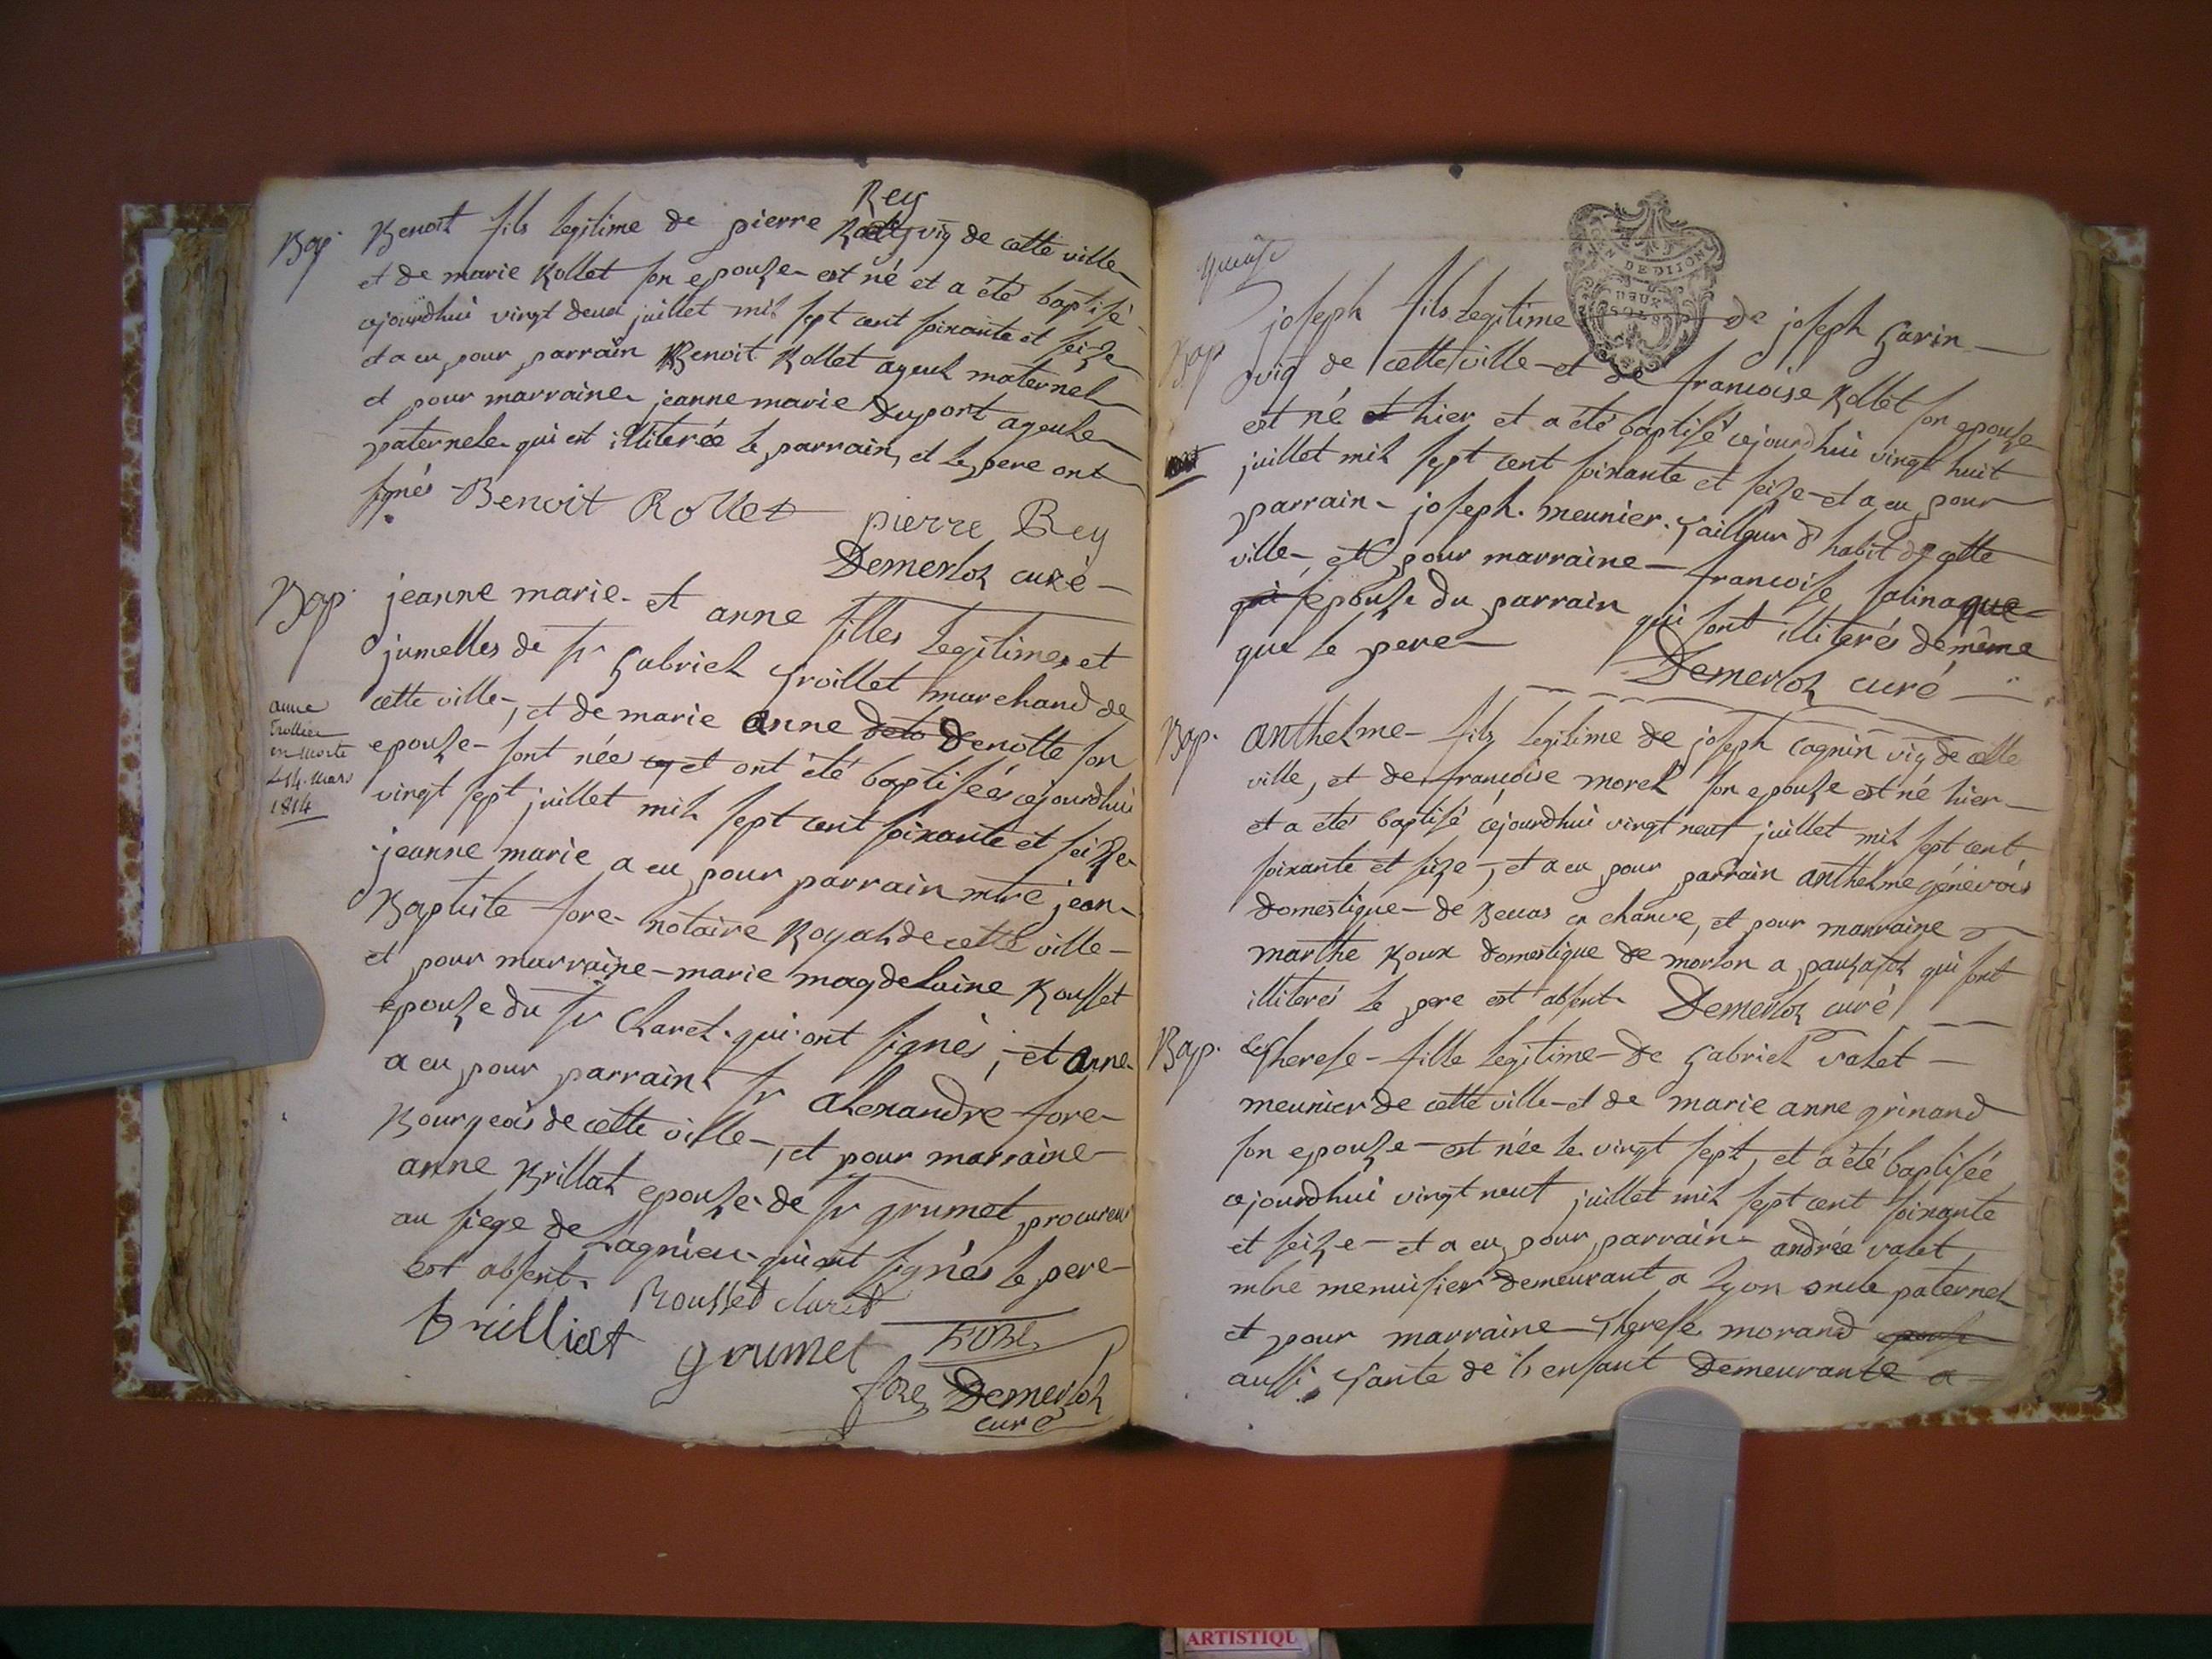 Bap. Benoit fils legitime de pierre Rey vig de cette ville
et de marie Rollet son epouse est né et a été baptisé
cejourdhui vingt deux juillet mil sept cent soixante et seize
et a eu pour parrain Benoit Rollet ayeul maternel
et pour marraine jeanne marie Duport ayeule
paternele qui est illiterée le parrain, et le pere ont
signés Benoit Rollet pierre Rey
Demerloz curé
Bap. jeanne marie et anne filles legitimes et
jumelles de sr Gabriel Troillet marchand de
cette ville, et de marie anne Denotte son
epouse sont nées et ont été baptisées cejourdhui
vingt sept juillet mil sept cent soixante et seize
jeanne marie a eu pour parrain mtre jean
Baptiste fore notaire Royal de cette ville
et pour marraine marie magdelaine Rousset
epouse du sr Claret qui ont signés, et anne
a eu pour parrain sr alexandre fore
Bourgeois de cette ville, et pour marraine
anne Brillat epouse de sr grumet procureur
au siege de Lagnieu qui ont signés le pere
est absent. Rousset claret
brilliat grumet FORE
fore Demerloz
curé
anne
Trollier
en morte
L 14 mars
1814
quinse
Bap joseph fils legitime de joseph Garin
vig de cette ville et de francoise Rollet son epouse
est né hier et a été baptisé cejourdhui vingt huit
juillet mil sept cent soixante et seize et a eu pour
parrain joseph meunier Tailleur d habit de cette
ville, et pour marraine francoise salina
epouse du parrain qui sont illiterés de même
que le pere Demerloz curé
Bap. anthelme fils legitime de joseph cagnin vig de cette
ville, et de francoise morel son epouse est né hier
et a été baptisé cejourdhui vingt neuf juillet mil sept cent
soixante et seize, et a eu pour parrain anthelme génévois
domestique de en chanve, et pour marraine
marthe Roux domestique de morlon a qui sont
illiterés le pere est absent Demerloz curé
Bap. Therese fille legitime de Gabriel valet
meunier de cette ville et de marie anne grinand
son epouse est née le vingt sept, et a été baptisée
cejourdhui vingt neuf juillet mil sept cent soixante
et seize et a eu pour parrain andrée valet
mtre menuisier demeurant a Lyon oncle paternel
et pour marraine Therese morand epouse
aussi Tante de l'enfant Demeurante a
GEN DE DIJON
DEUX
SOLS
ARTISTIQU